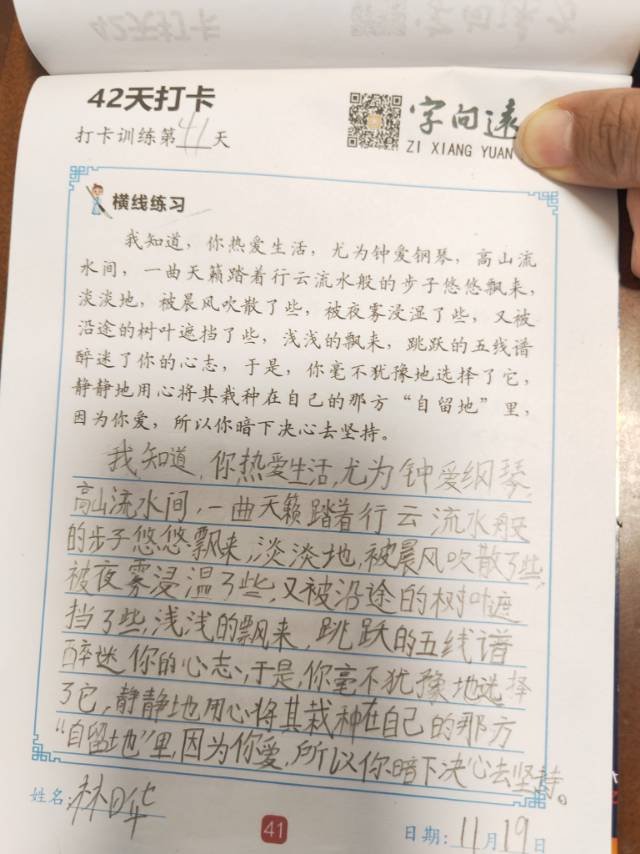 42天打卡
字向远
ZI XIANG YUAN
打卡训练第41天
横线练习
我知道，你热爱生活，尤为钟爱钢琴，高山流
水间，一曲天籁踏着行云流水般的步子悠悠飘来，
淡淡地，被晨风吹散了些，被夜雾浸湿了些，又被
沿途的树叶遮挡了些，浅浅的飘来，跳跃的五线谱
醉迷了你的心志，于是，你毫不犹豫地选择了它，
静静地用心将其栽种在自己的那方“自留地”里，
因为你爱，所以你暗下决心去坚持。
我知道，你热爱生活，尤为钟爱钢琴，
高山流水间，一曲天籁踏着行云流水般
的步子悠悠飘来，淡淡地，被晨风吹散了些，
被夜雾浸温了些，又被沿途的树叶遮
挡了些，浅浅的飘来，跳跃的五线谱
醉迷你的心志，于是，你毫不犹豫地选择
了它，静静地用心将其栽种在自己的那方
“自留地”里，因为你爱，所以你暗下决心去坚持。
姓名：林晔
41
日期：11月19日